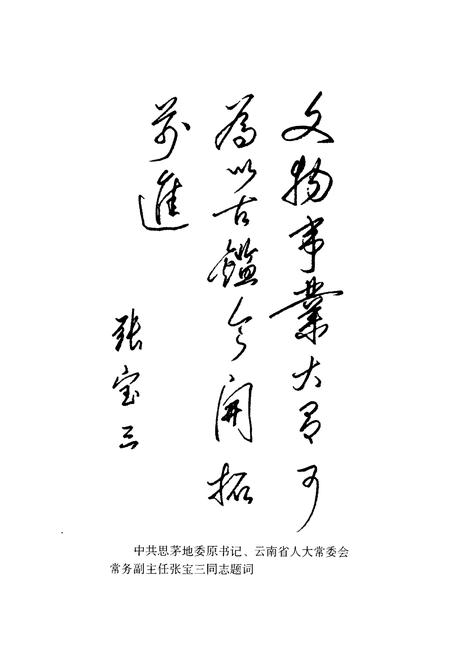 文物事业大有可
為以古鑑今開拓
前進
张宝三
中共思茅地委原书记、云南省人大常委会
常务副主任张宝三同志题词